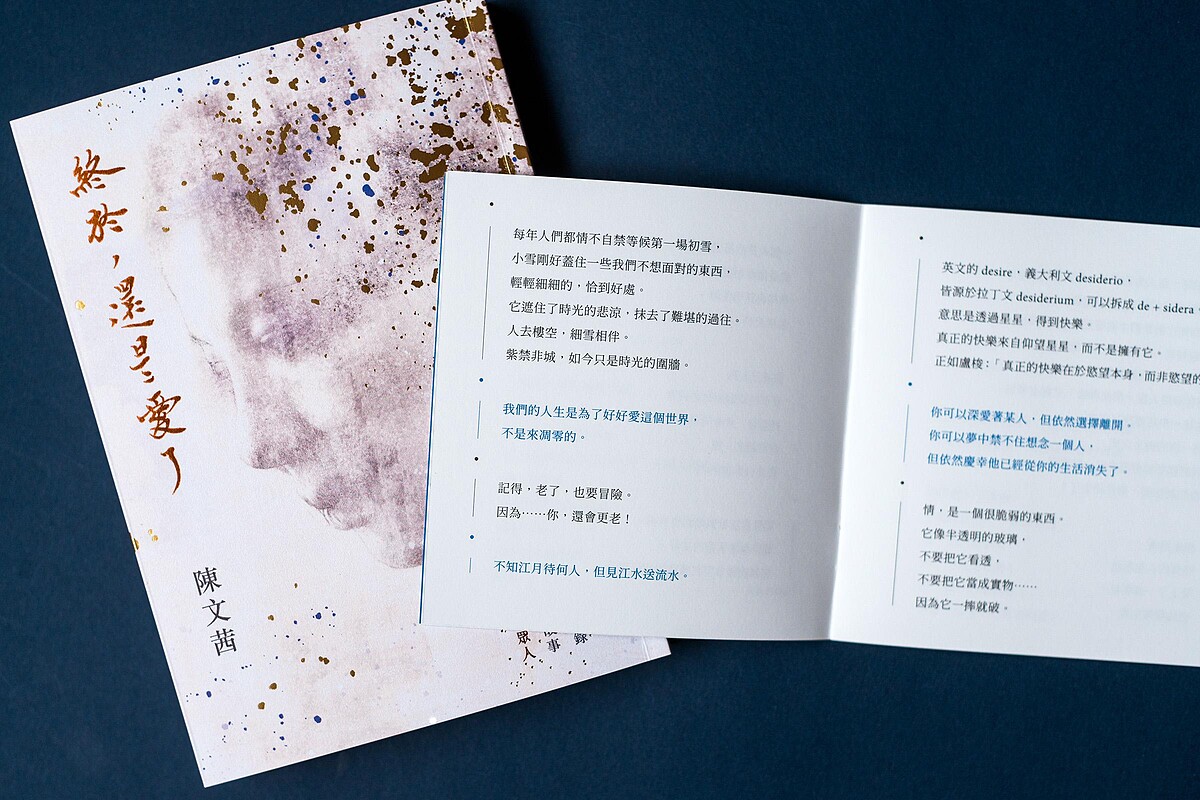 終於，還是愛了
陳文茜
眾人
事
錄
每年人們都情不自禁等候第一場初雪，
小雪剛好蓋住一些我們不想面對的東西，
輕輕細細的，恰到好處。
它遮住了時光的悲涼，抹去了難堪的過往。
人去樓空，細雪相伴。
紫禁非城，如今只是時光的圍牆。
我們的人生是為了好好愛這個世界，
不是來凋零的。
記得，老了，也要冒險。
因為……你，還會更老！
不知江月待何人，但見江水送流水。
英文的 desire，義大利文 desiderio，
皆源於拉丁文 desiderium，可以拆成 de + sidera，
意思是透過星星，得到快樂。
真正的快樂來自仰望星星，而不是擁有它。
正如盧梭：「真正的快樂在於慾望本身，而非慾望的
你可以深愛著某人，但依然選擇離開。
你可以夢中禁不住想念一個人，
但依然慶幸他已經從你的生活消失了。
情，是一個很脆弱的東西。
它像半透明的玻璃，
不要把它看透，
不要把它當成實物……
因為它一摔就破。